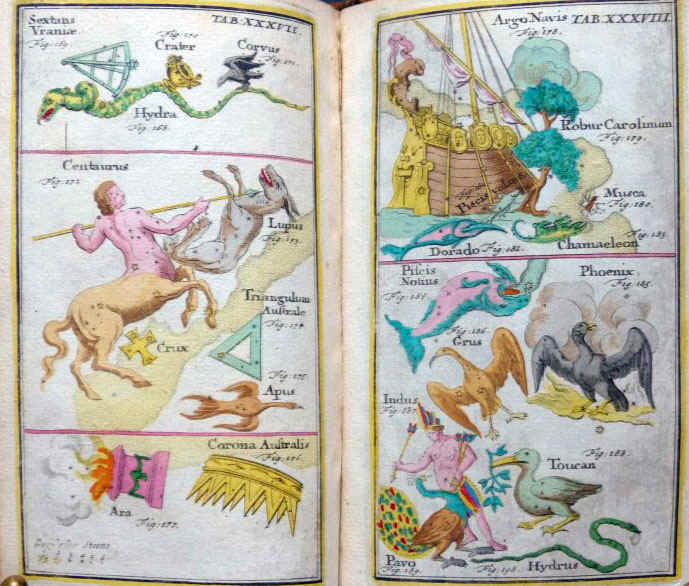 Sextans
Vraniæ
TAB. XXXVII.
Fig: 170
Crater
Corvus
Hydra
Fig: 168.
Centaurus
Fig: 172.
Lupus
Fig: 173.
Triangulum
Australe
Fig: 174.
Crux
Fig: 175.
Apus
Corona Australis
Fig: 176.
Ara
Fig: 177.
Argo Navis TAB. XXXVIII
Fig: 178.
Robur Carolinum
Fig: 179.
Piscis volans
Musca
Fig: 180.
Dorado Fig: 182.
Chamaeleon
Fig: 183.
Piscis
Notius
Phoenix
Fig: 185.
Fig: 186.
Grus
Indus
Fig: 187.
Fig: 188.
Toucan
Pavo
Fig: 189.
Hydrus